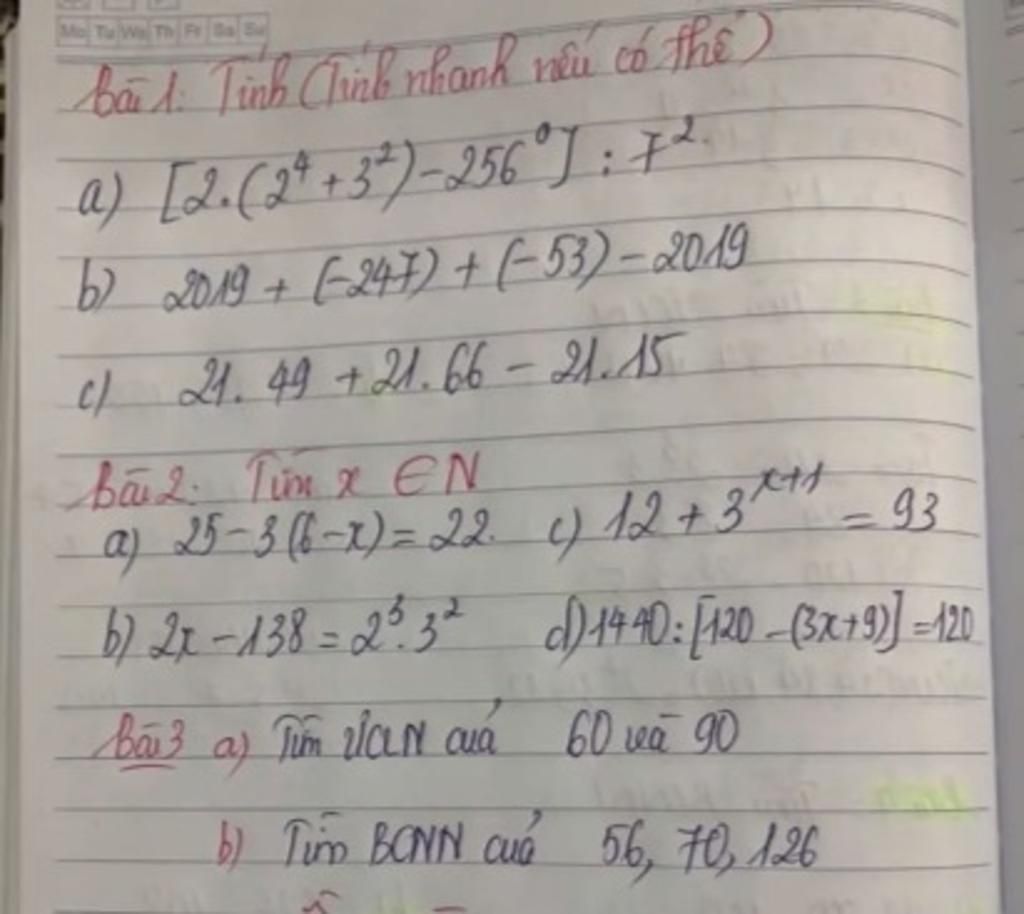 Mo Tu We Th Fr Sa Su
Bài 1: Tính (Tính nhanh nếu có thể)
a) [2.(2⁴ + 3²) - 256⁰] : 7².
b) 2019 + (-247) + (-53) - 2019
c) 21. 49 + 21. 66 - 21. 15
Bài 2: Tìm x ∈ N
a) 25 - 3(6 - x) = 22. c) 12 + 3ˣ⁺¹ = 93
b) 2x - 138 = 2³. 3² d) 1440 : [120 - (3x+9)] = 120
Bài 3 a) Tìm ƯCLN của 60 và 90
b) Tìm BCNN của 56, 70, 126